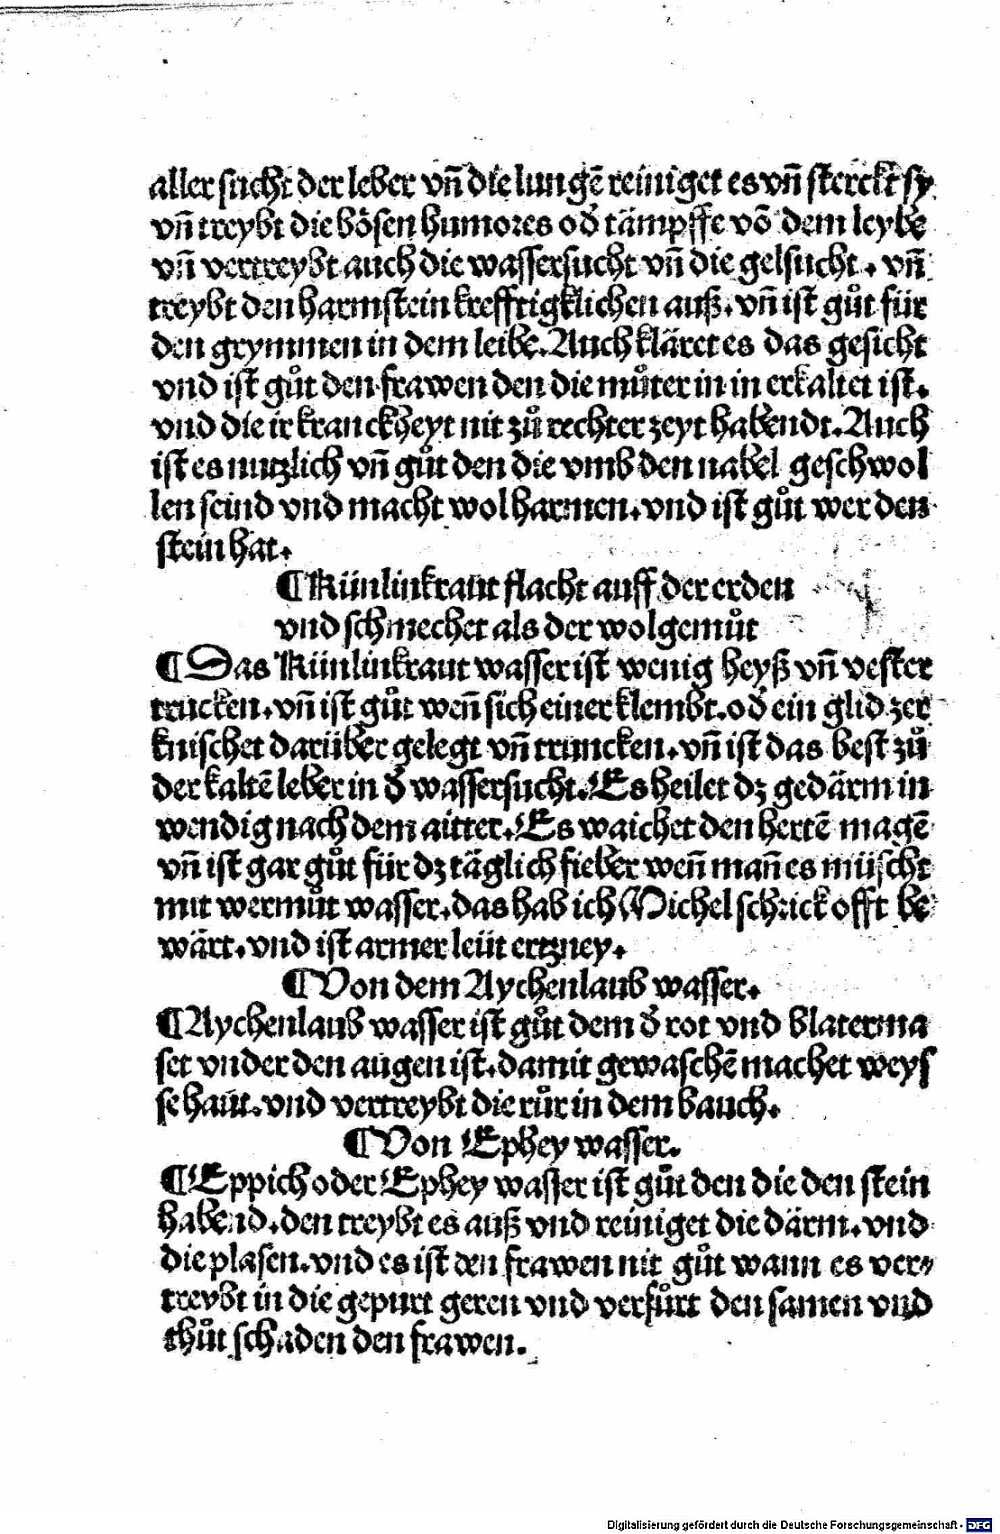 aller sucht der leber vn̄ die lungē reiniget es vn̄ sterckt sy
vn̄ treybt die bösen humores od̕ tämpffe vō dem leybe
vn̄ vertreybt auch die wassersucht vn̄ die gelsucht. vn̄
treybt den harmstein krefftigklichen auß. vn̄ ist gůt für
den grymmen in dem leibe. Auch kläret es das gesicht
vnd ist gůt den frawen den die můter in in erkaltet ist.
vnd die ir kranckheyt nit zů rechter zeyt habendt. Auch
ist es nutzlich vn̄ gůt den die vmb den nabel geschwol
len seind vnd macht wol harmen. vnd ist gůt wer den
stein hat.
¶ Künlinkraut flacht auff der erden
vnd schmechet als der wolgemůt
¶ Das Künlinkraut wasser ist wenig heyß vn̄ vester
trucken. vn̄ ist gůt wen̄ sich einer klembt. od̕ ein glid zer
knischet darüber gelegt vn̄ truncken. vn̄ ist das best zů
der kaltē leber in d̕ wassersucht. Es heilet dz gedärm in
wendig nach dem aitter. Es waichet den hertē magē
vn̄ ist gar gůt für dz täglich fieber wen̄ man̄ es müscht
mit wermůt wasser. das hab ich Michel schrick offt be
wärt. vnd ist armer leüt ertzney.
¶ Von dem Aychenlaub wasser.
¶ Aychenlaub wasser ist gůt dem d̕ rot vnd blaterma
set vnder den augen ist. damit gewaschē machet weys
se haüt. vnd vertreybt die růr in dem bauch.
¶ Von Ephey wasser.
¶ Eppich oder Ephey wasser ist gůt den die den stein
habend. den treybt es auß vnd reiniget die därm. vnd
die plasen. vnd es ist den frawen nit gůt wann es ver⸗
treybt in die gepurt geren vnd verfůrt den samen vnd
thůt schaden den frawen.
Digitalisierung gefördert durch die Deutsche Forschungsgemeinschaft - DFG